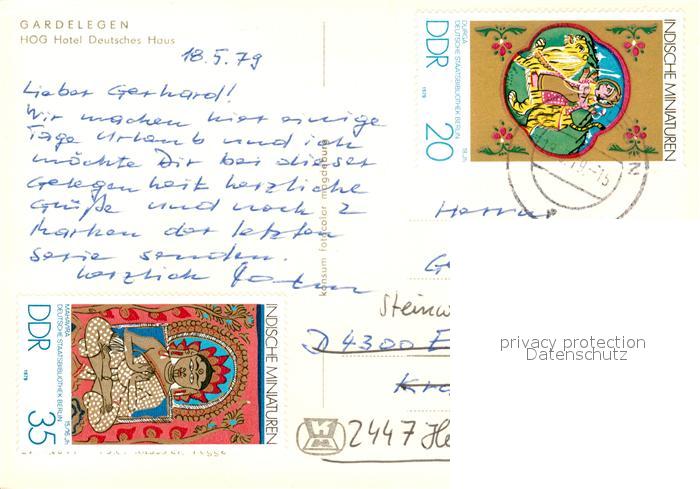 GARDELEGEN
HOG Hotel Deutsches Haus
18.5.79
Lieber Gerhard!
Wir machen hier einige
Tage Urlaub und ich
möchte Dir bei dieser
Gelegenheit herzliche
Grüße und noch 2
Marken der letzten
Serie senden.
Herzlich
konsum fotocolor magdeburg
INDISCHE MINIATUREN
DURGA
DEUTSCHE STAATSBIBLIOTHEK BERLIN 18.Jh
DDR 20
1979
Herrn
G
Steinw
D 4300 E
2447 He
privacy protection
Datenschutz
INDISCHE MINIATUREN
MAHAVIRA
DEUTSCHE STAATSBIBLIOTHEK BERLIN 15./16.Jh
DDR 35
1979